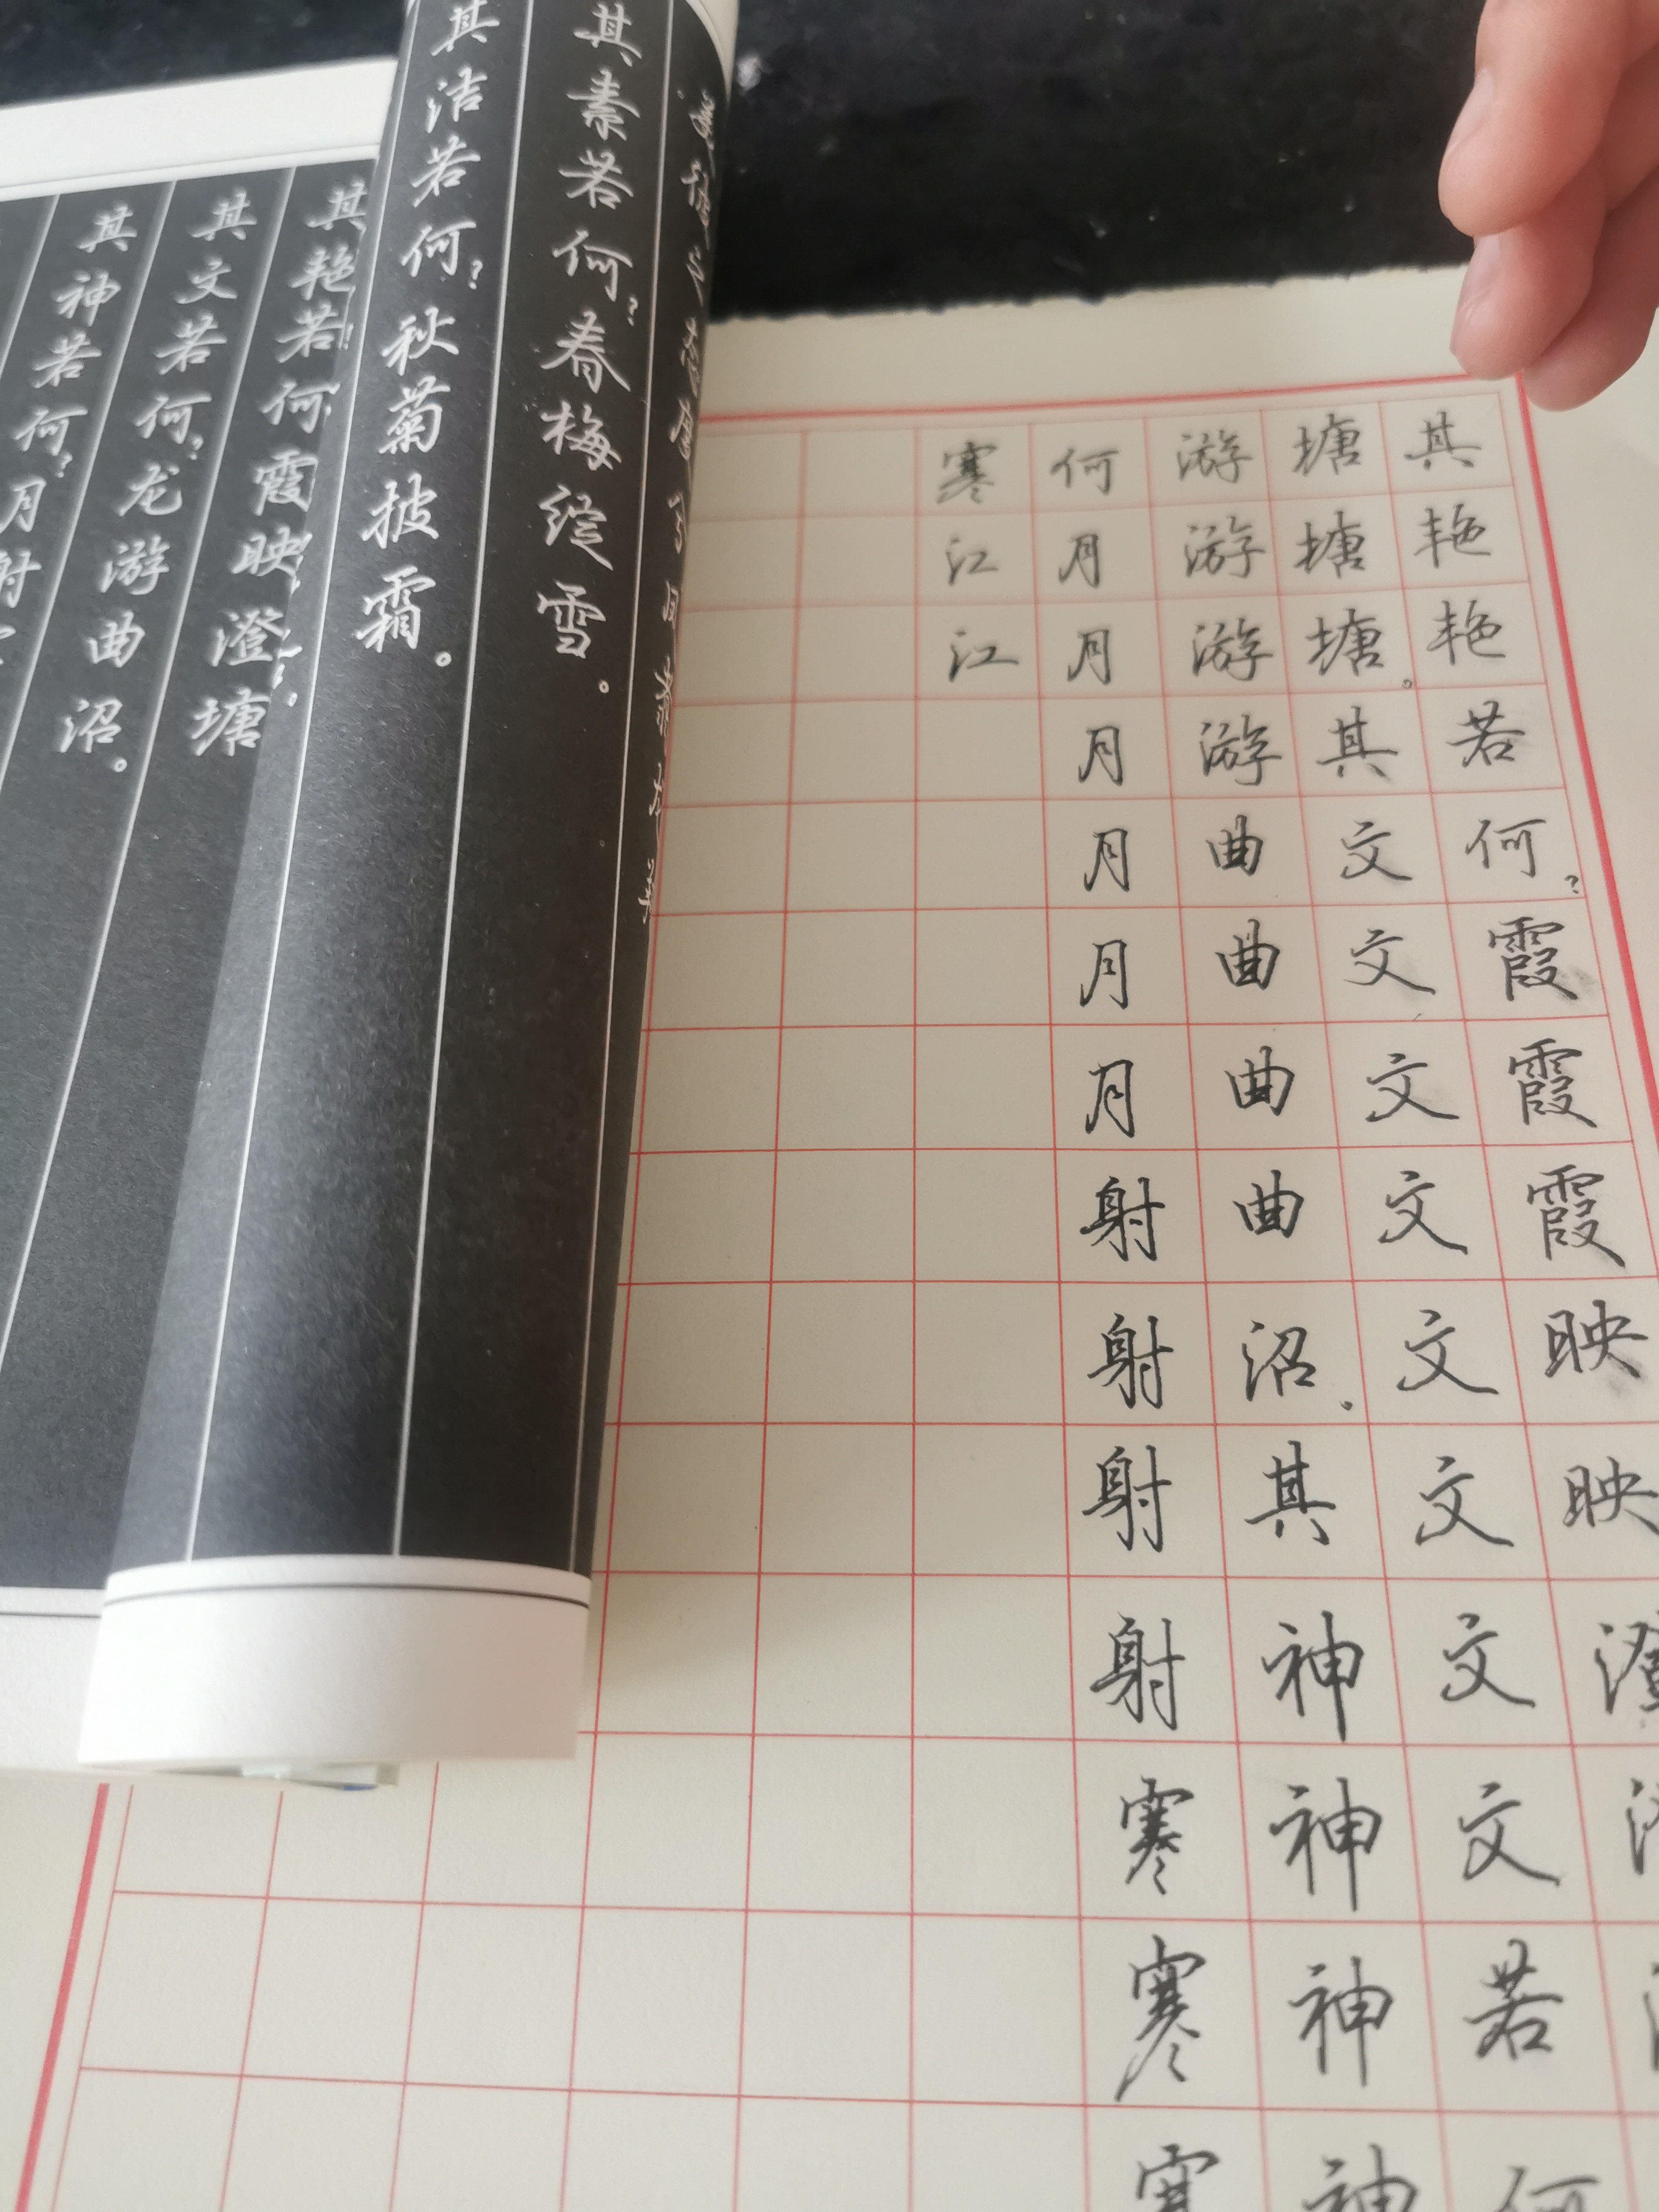 其素若何?春梅绽雪。
其洁若何?秋菊披霜。
其艳若何 霞映澄塘
其文若何?龙游曲沼。
其神若何?月射
其艳艳若何?霞霞霞映映澄
塘塘塘。其文文文文文文文文若何
游游游游曲曲曲曲沼。其神神神神
何月月月月月月射射射射寒寒寒
寒江江